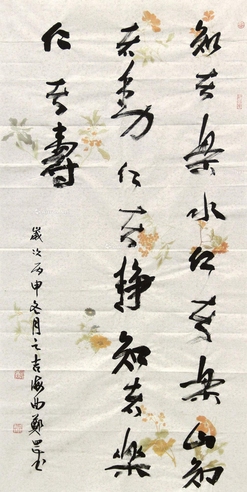 知者樂水仁者樂山知
者動仁者靜知者樂
仁者壽
歲次丙申冬月之吉海曲鄭書